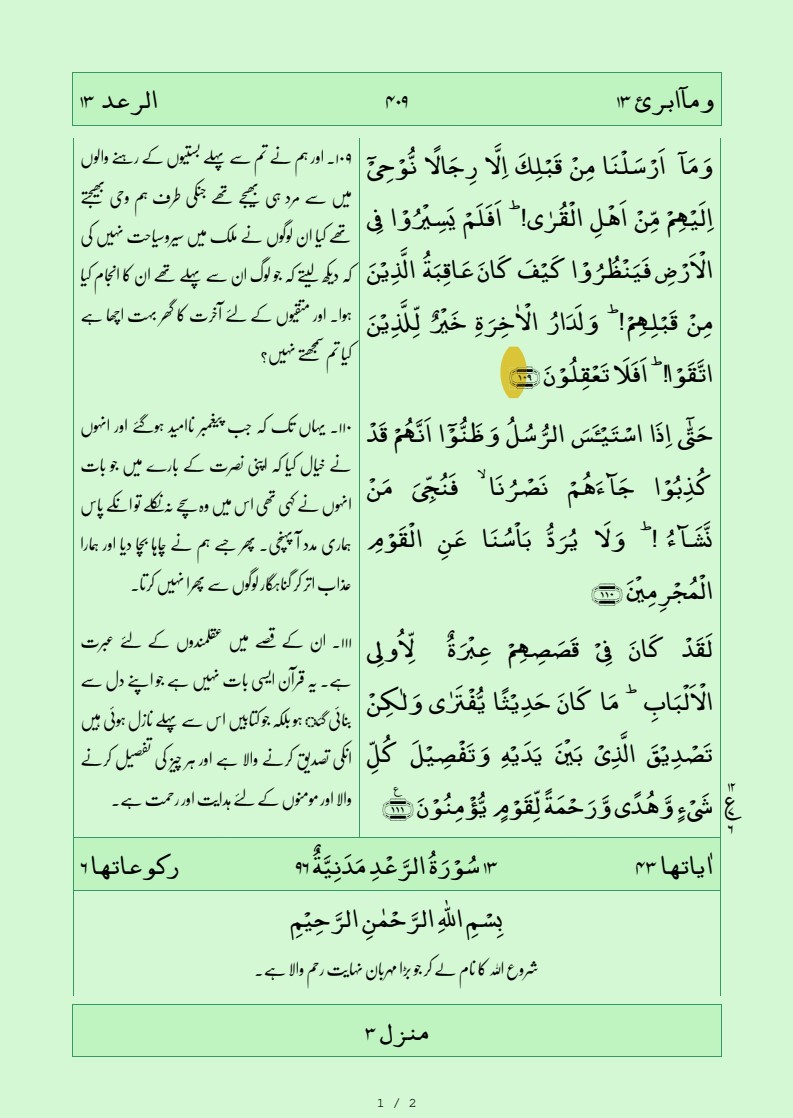 ومآابرئ ۱۳ ۴۰۹ الرعد ۱۳
وَمَاۤ اَرۡسَلۡنَا مِنۡ قَبۡلِكَ اِلَّا رِجَالًا نُّوۡحِىۡۤ
اِلَيۡهِمۡ مِّنۡ اَهۡلِ الۡقُرٰى! ؕ اَفَلَمۡ يَسِيۡرُوۡا فِى
الۡاَرۡضِ فَيَنۡظُرُوۡا كَيۡفَ كَانَ عَاقِبَةُ الَّذِيۡنَ
مِنۡ قَبۡلِهِمۡ! ؕ وَلَدَارُ الۡاٰخِرَةِ خَيۡرٌ لِّلَّذِيۡنَ
اتَّقَوۡا! ؕ اَفَلَا تَعۡقِلُوۡنَ ﴿۱۰۹﴾
۱۰۹۔ اور ہم نے تم سے پہلے بستیوں کے رہنے والوں
میں سے مرد ہی بھیجے تھے جنکی طرف ہم وحی بھیجتے
تھے کیا ان لوگوں نے ملک میں سیروسیاحت نہیں کی
کہ دیکھ لیتے کہ جو لوگ ان سے پہلے تھے ان کا انجام کیا
ہوا۔ اور متقیوں کے لئے آخرت کا گھر بہت اچھا ہے
کیا تم سمجھتے نہیں؟
حَتّٰۤى اِذَا اسۡتَيۡـَٔسَ الرُّسُلُ وَظَنُّوۡۤا اَنَّهُمۡ قَدۡ
كُذِبُوۡا جَآءَهُمۡ نَصۡرُنَا ۙ فَنُجِّىَ مَنۡ
نَّشَآءُ ! ؕ وَلَا يُرَدُّ بَاۡسُنَا عَنِ الۡقَوۡمِ
الۡمُجۡرِمِيۡنَ ﴿۱۱۰﴾
۱۱۰۔ یہاں تک کہ جب پیغمبر ناامید ہوگئے اور انہوں
نے خیال کیا کہ اپنی نصرت کے بارے میں جو بات
انہوں نے کہی تھی اس میں وہ سچے نہ نکلے تو انکے پاس
ہماری مدد آ پہنچی۔ پھر جسے ہم نے چاہا بچا دیا اور ہمارا
عذاب اتر کر گناہگار لوگوں سے پھرا نہیں کرتا۔
لَقَدۡ كَانَ فِىۡ قَصَصِهِمۡ عِبۡرَةٌ لِّاُولِى
الۡاَلۡبَابِ ؕ مَا كَانَ حَدِيۡثًا يُّفۡتَرٰى وَلٰـكِنۡ
تَصۡدِيۡقَ الَّذِىۡ بَيۡنَ يَدَيۡهِ وَتَفۡصِيۡلَ كُلِّ
شَىۡءٍ وَّهُدًى وَّرَحۡمَةً لِّقَوۡمٍ يُّؤۡمِنُوۡنَ ﴿۱۱۱﴾ ع
۱۲
ع
۶
۱۱۱۔ ان کے قصے میں عقلمندوں کے لئے عبرت
ہے۔ یہ قرآن ایسی بات نہیں ہے جو اپنے دل سے
بنائی گئ ہو بلکہ جو کتابیں اس سے پہلے نازل ہوئی ہیں
انکی تصدیق کرنے والا ہے اور ہر چیز کی تفصیل کرنے
والا اور مومنوں کے لئے ہدایت اور رحمت ہے۔
اٰیاتها ۴۳ ۱۳ سُوۡرَةُ الرَّعۡدِ مَدَنِيَّةٌ ۹۶ ركوعاتها ۶
بِسۡمِ اللّٰهِ الرَّحۡمٰنِ الرَّحِيۡمِ
شروع اللہ کا نام لے کر جو بڑا مہربان نہایت رحم والا ہے۔
منزل ۳
1 / 2